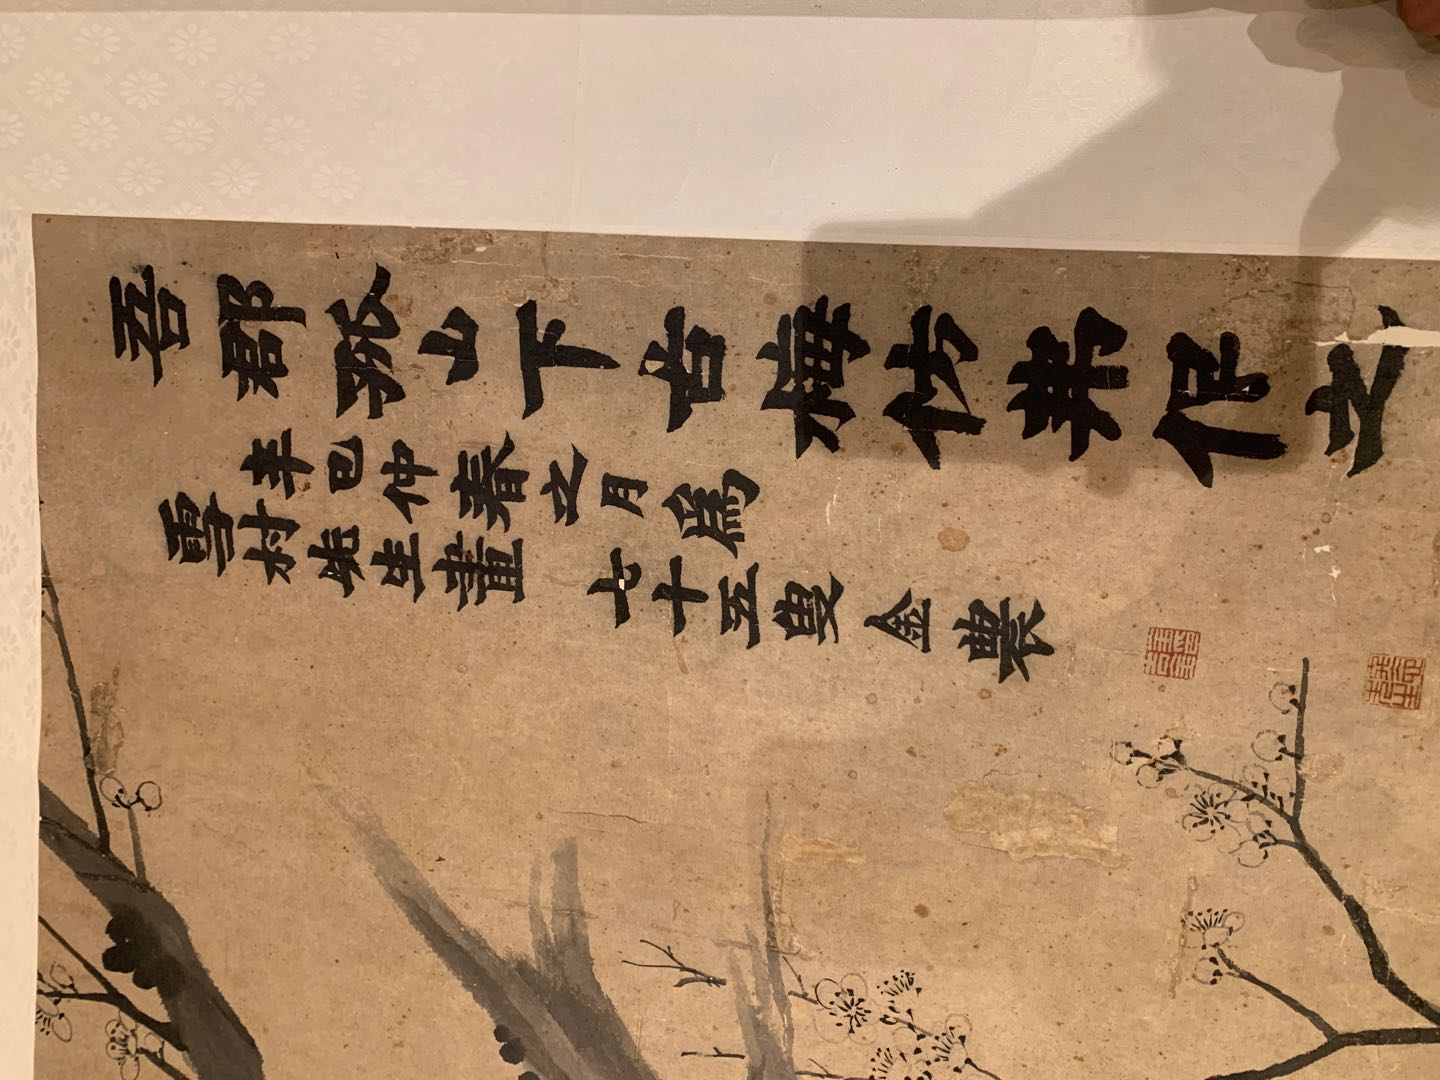 吾郡孤山下古梅仿弗侣之
辛巳仲春之月為
雪村先生畫 七十五叟金農